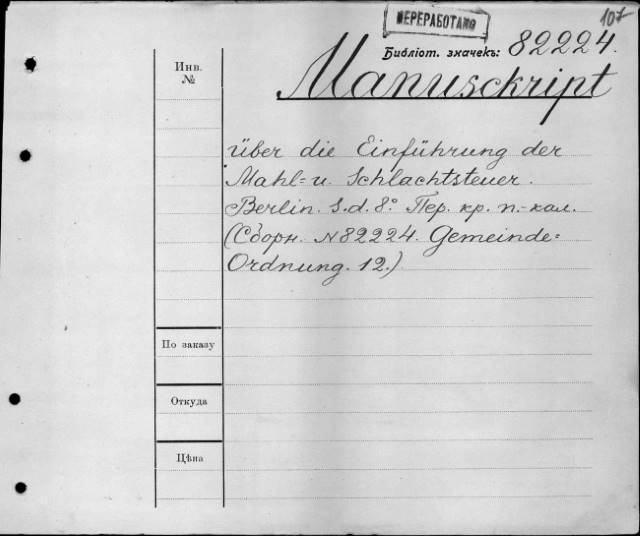 ПЕРЕРАБОТАНО
107
Библіот. значекъ: 82224.
Manusckript
Инв.
№
über die Einführung der
Mahl= u. Schlachtsteuer.
Berlin. S.d. 8º. Пер. кр. п.-кал.
(Сборн. №82224. Gemeinde=
Ordnung. 12.)
По заказу
Откуда
Цѣна